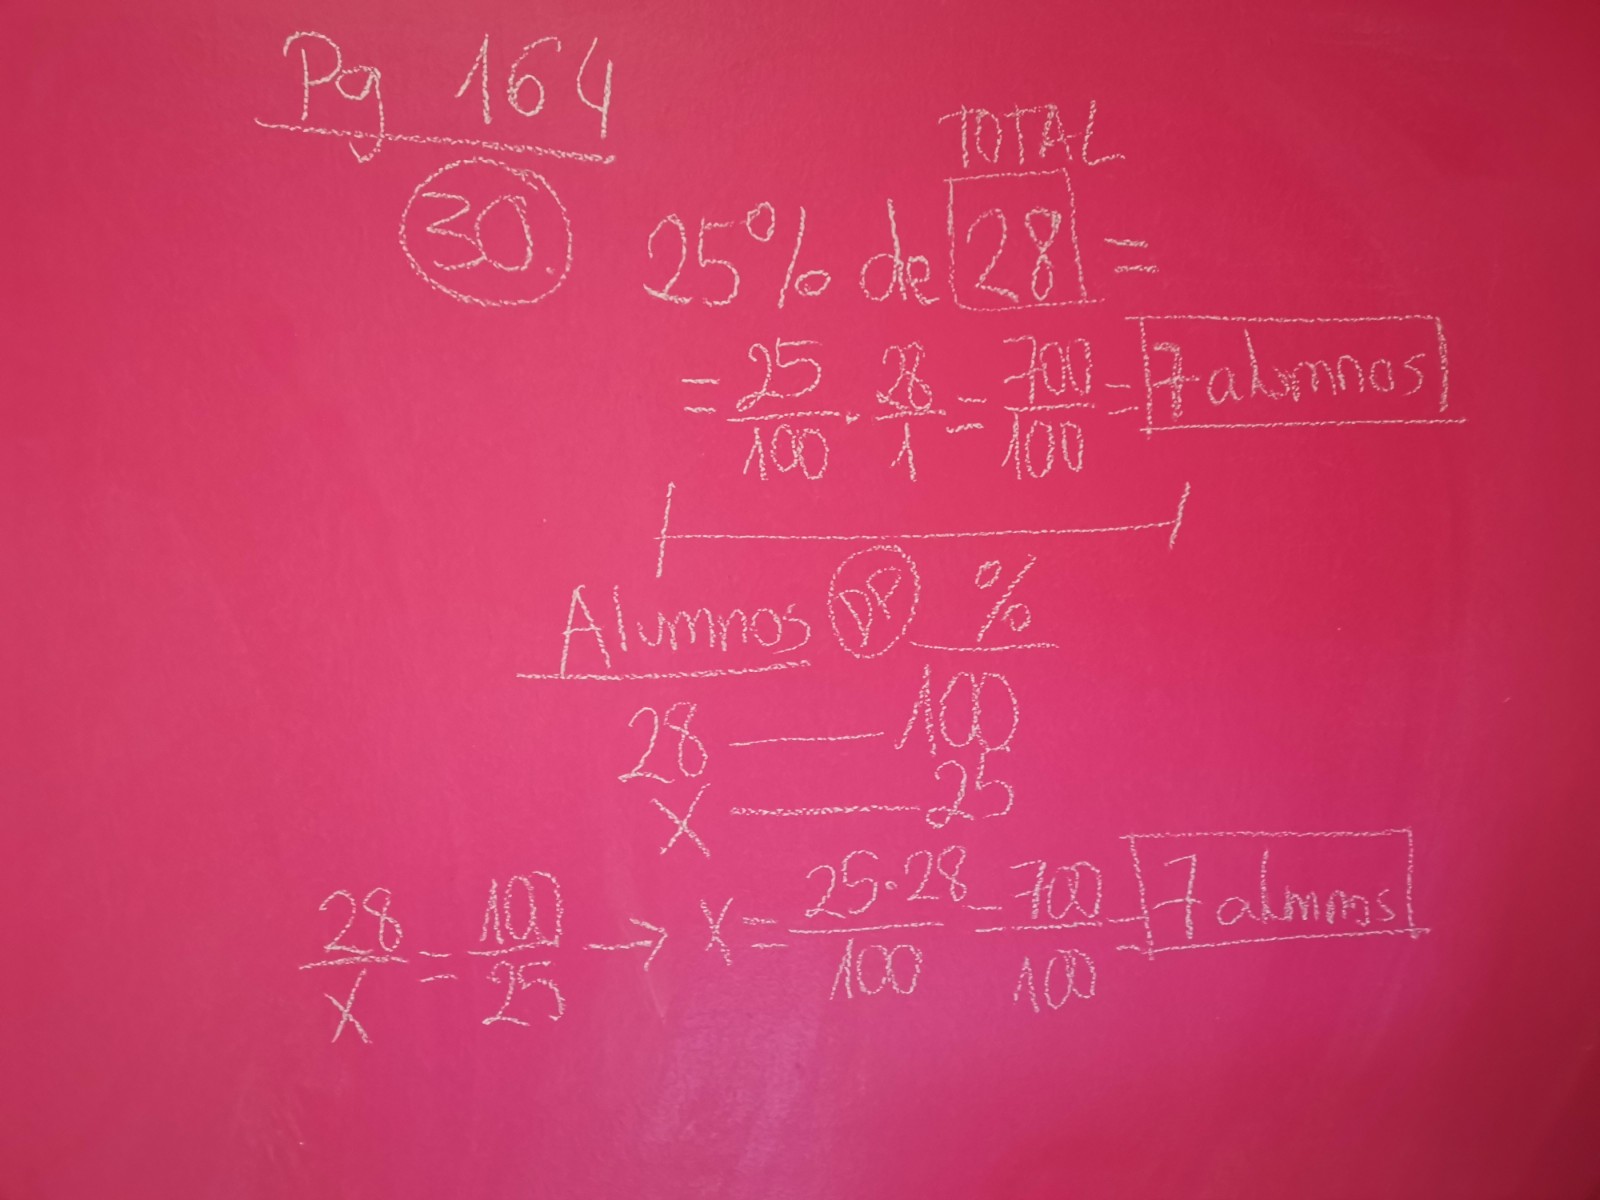 Pg 164
30.
TOTAL
25% de 28 =
= 25/100 · 28/1 = 700/100 = 7 alumnos
Alumnos DP %
28 — 100
X — 25
28/X = 100/25 → X = 25·28/100 = 700/100 = 7 almnos